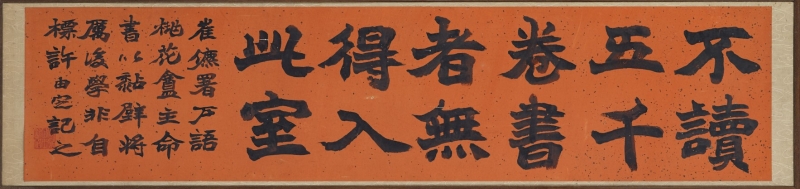 不讀
五千
卷書
者無
得入
此室
崔儦署戶語
花盦主命
書以黏壁將
厲後學非自
標許記之